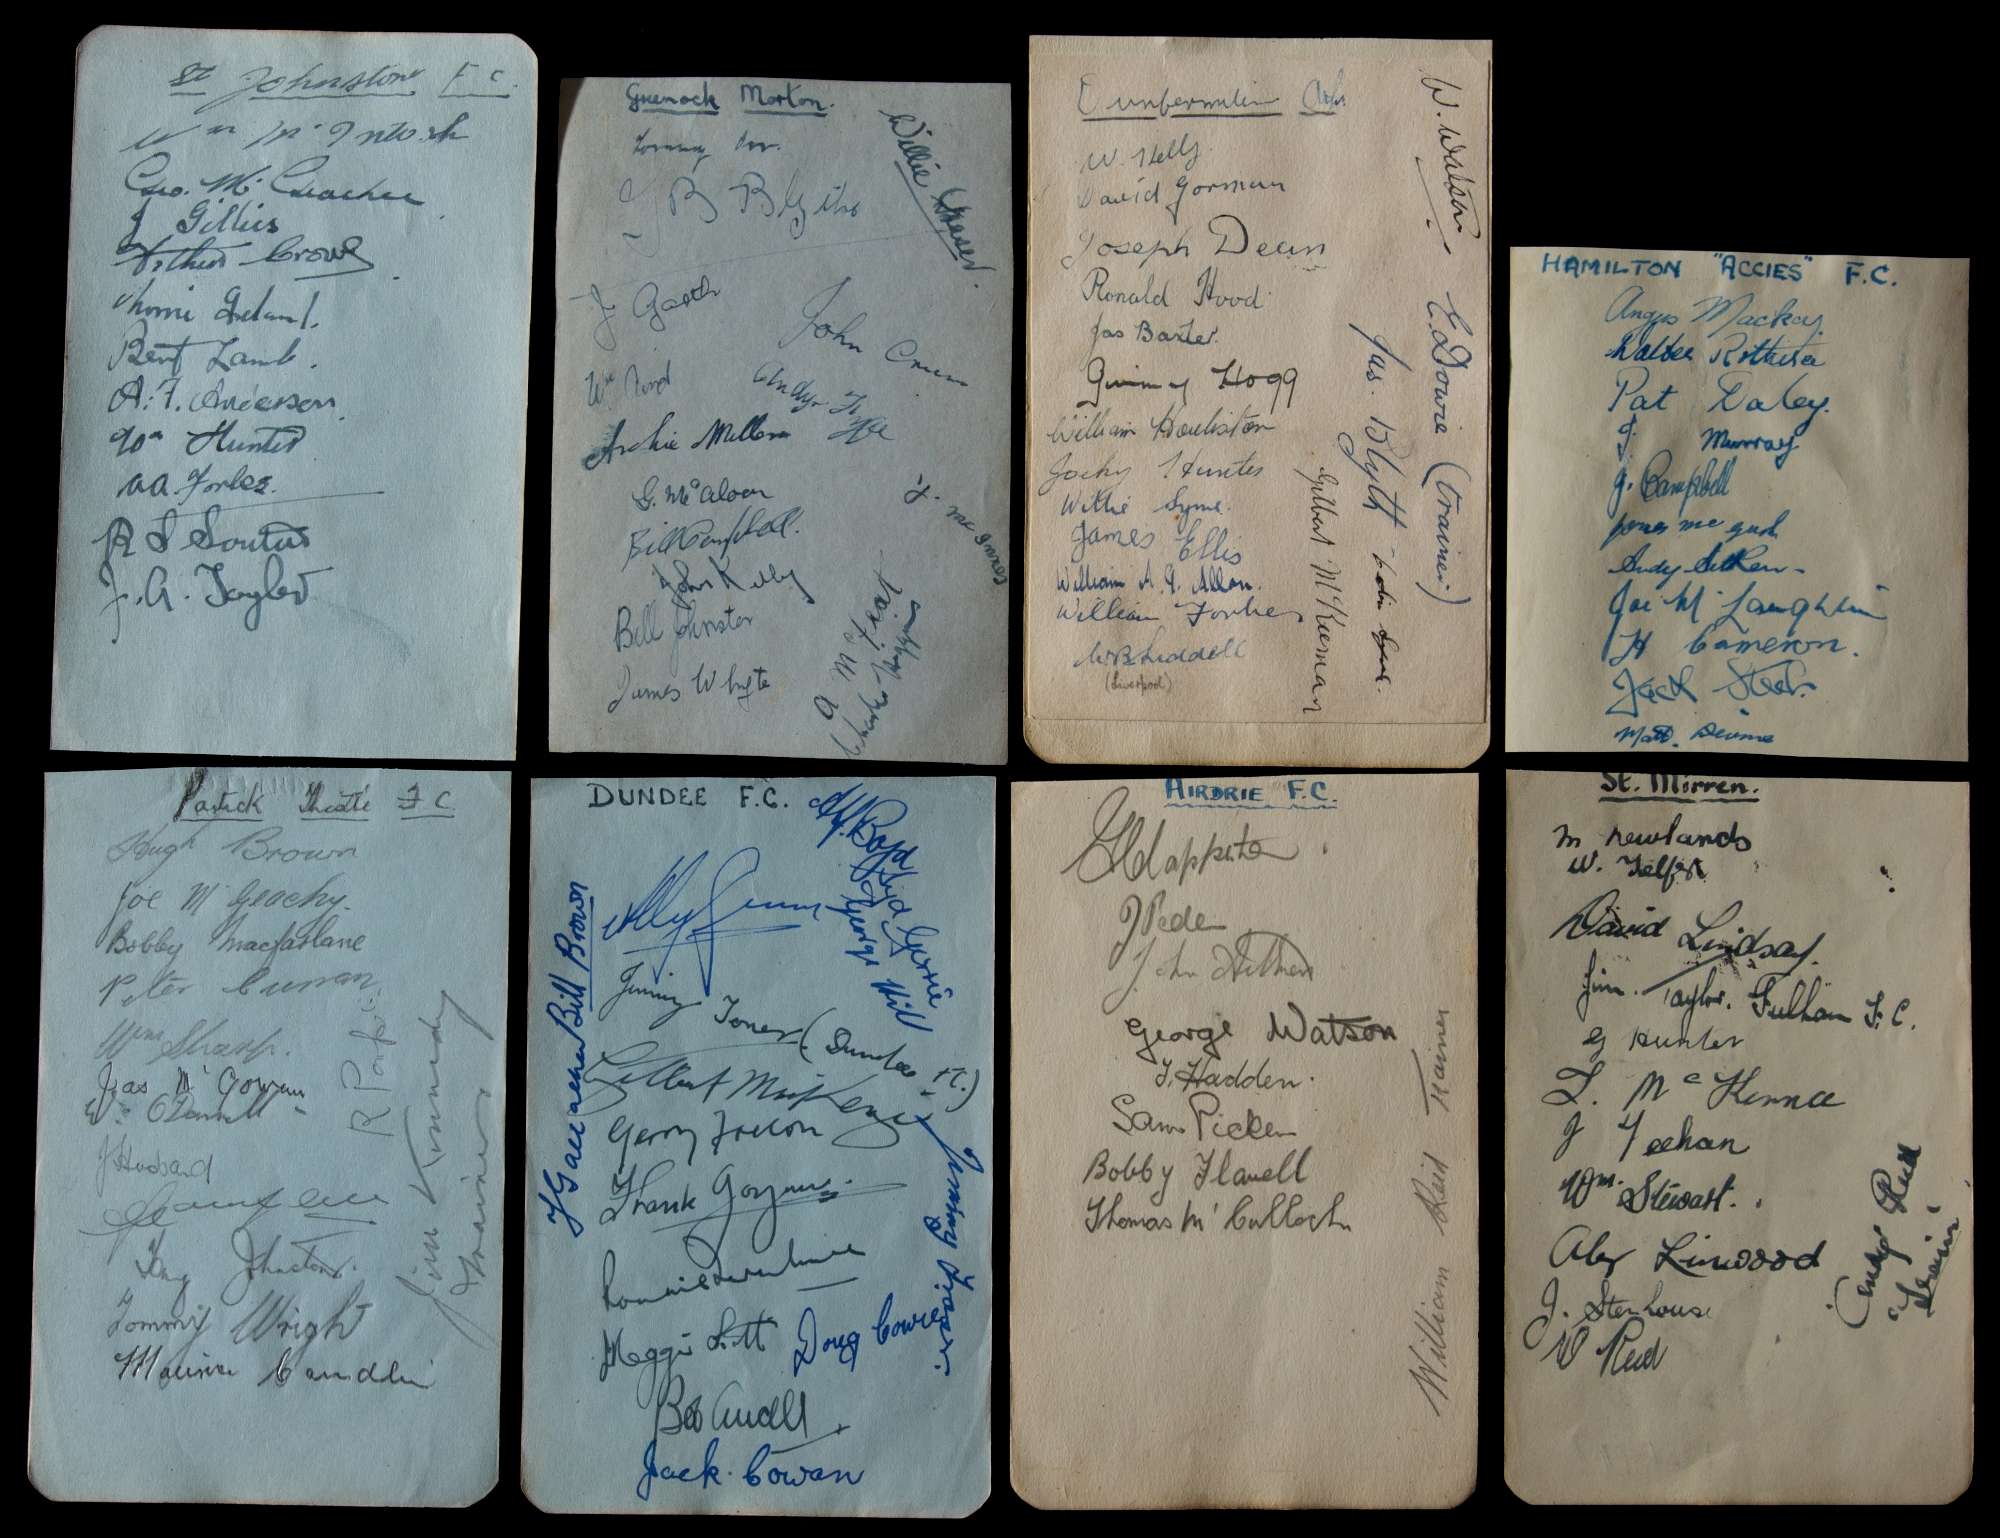 St Johnston F C.
Wm McIntosh
Geo. McGeachie
J Gillies
Arthur Crowe
Bert Lamb.
A. F. Anderson.
Wm Hunter
A A. Forbes.
R S Soutar
J. A. Taylor
Greenock Morton.
Willie Fraser.
Tommy Orr.
J B Blyths
J Garth
John Crum
Andy
Archie Millar
G. McAloon
J. McInnes
Bill Campbell.
John Kelly
Bill Johnston
James Whyte
Dunfermline
W. Kelly
David Gorman
Joseph Dean
Ronald Hood
Jas Baxter.
Jimmy Hogg
William Houliston
Jocky Hunter
Willie Syme.
James Ellis
William A. G. Allan.
William Forbes
W B Liddell
(Liverpool)
W. Walton
E. Dowie (trainer)
Jas. Blyth
Gilbert McKiernan
Colin Syme.
HAMILTON "ACCIES" F.C.
Angus Mackay.
Pat Daley.
J. Murray
J. Campbell
Andy Aitken
Joe McLaughlin
H Cameron.
Jack Steel.
Matt. Devine
Partick Thistle F C
Hugh Brown
Joe McGeachy.
Bobby Macfarlane
Peter Curran
Wm Sharp.
Jas McGowan
Wm O'Donnell
J Husband
Johnston.
Tommy Wright
Jim Kennedy
trainer
DUNDEE F.C.
Alf. Boyd
Syd Gerrie
George Hill
Ally Gunn
Bill Brown
J Gallacher
Jimmy Toner (Dundee F.C.)
Gerry Follon
Reggie Smith
Doug Cowie
Jimmy Fraser.
Bob Ancell
Jack. Cowan
AIRDRIE F.C.
J Peden
John Aitken
George Watson
J. Hadden.
Sam Picken
Bobby Flavell
Thomas McCulloch
William Reid trainer
St. Mirren.
M Newlands
W. Telfer
David Lindsay.
Jim. Taylor. Fulham F. C.
G Hunter
L. McKenna
J Feehan
Wm. Stewart.
Alex Linwood
J. Stenhouse
W Reid
(Andy Reid
Trainer